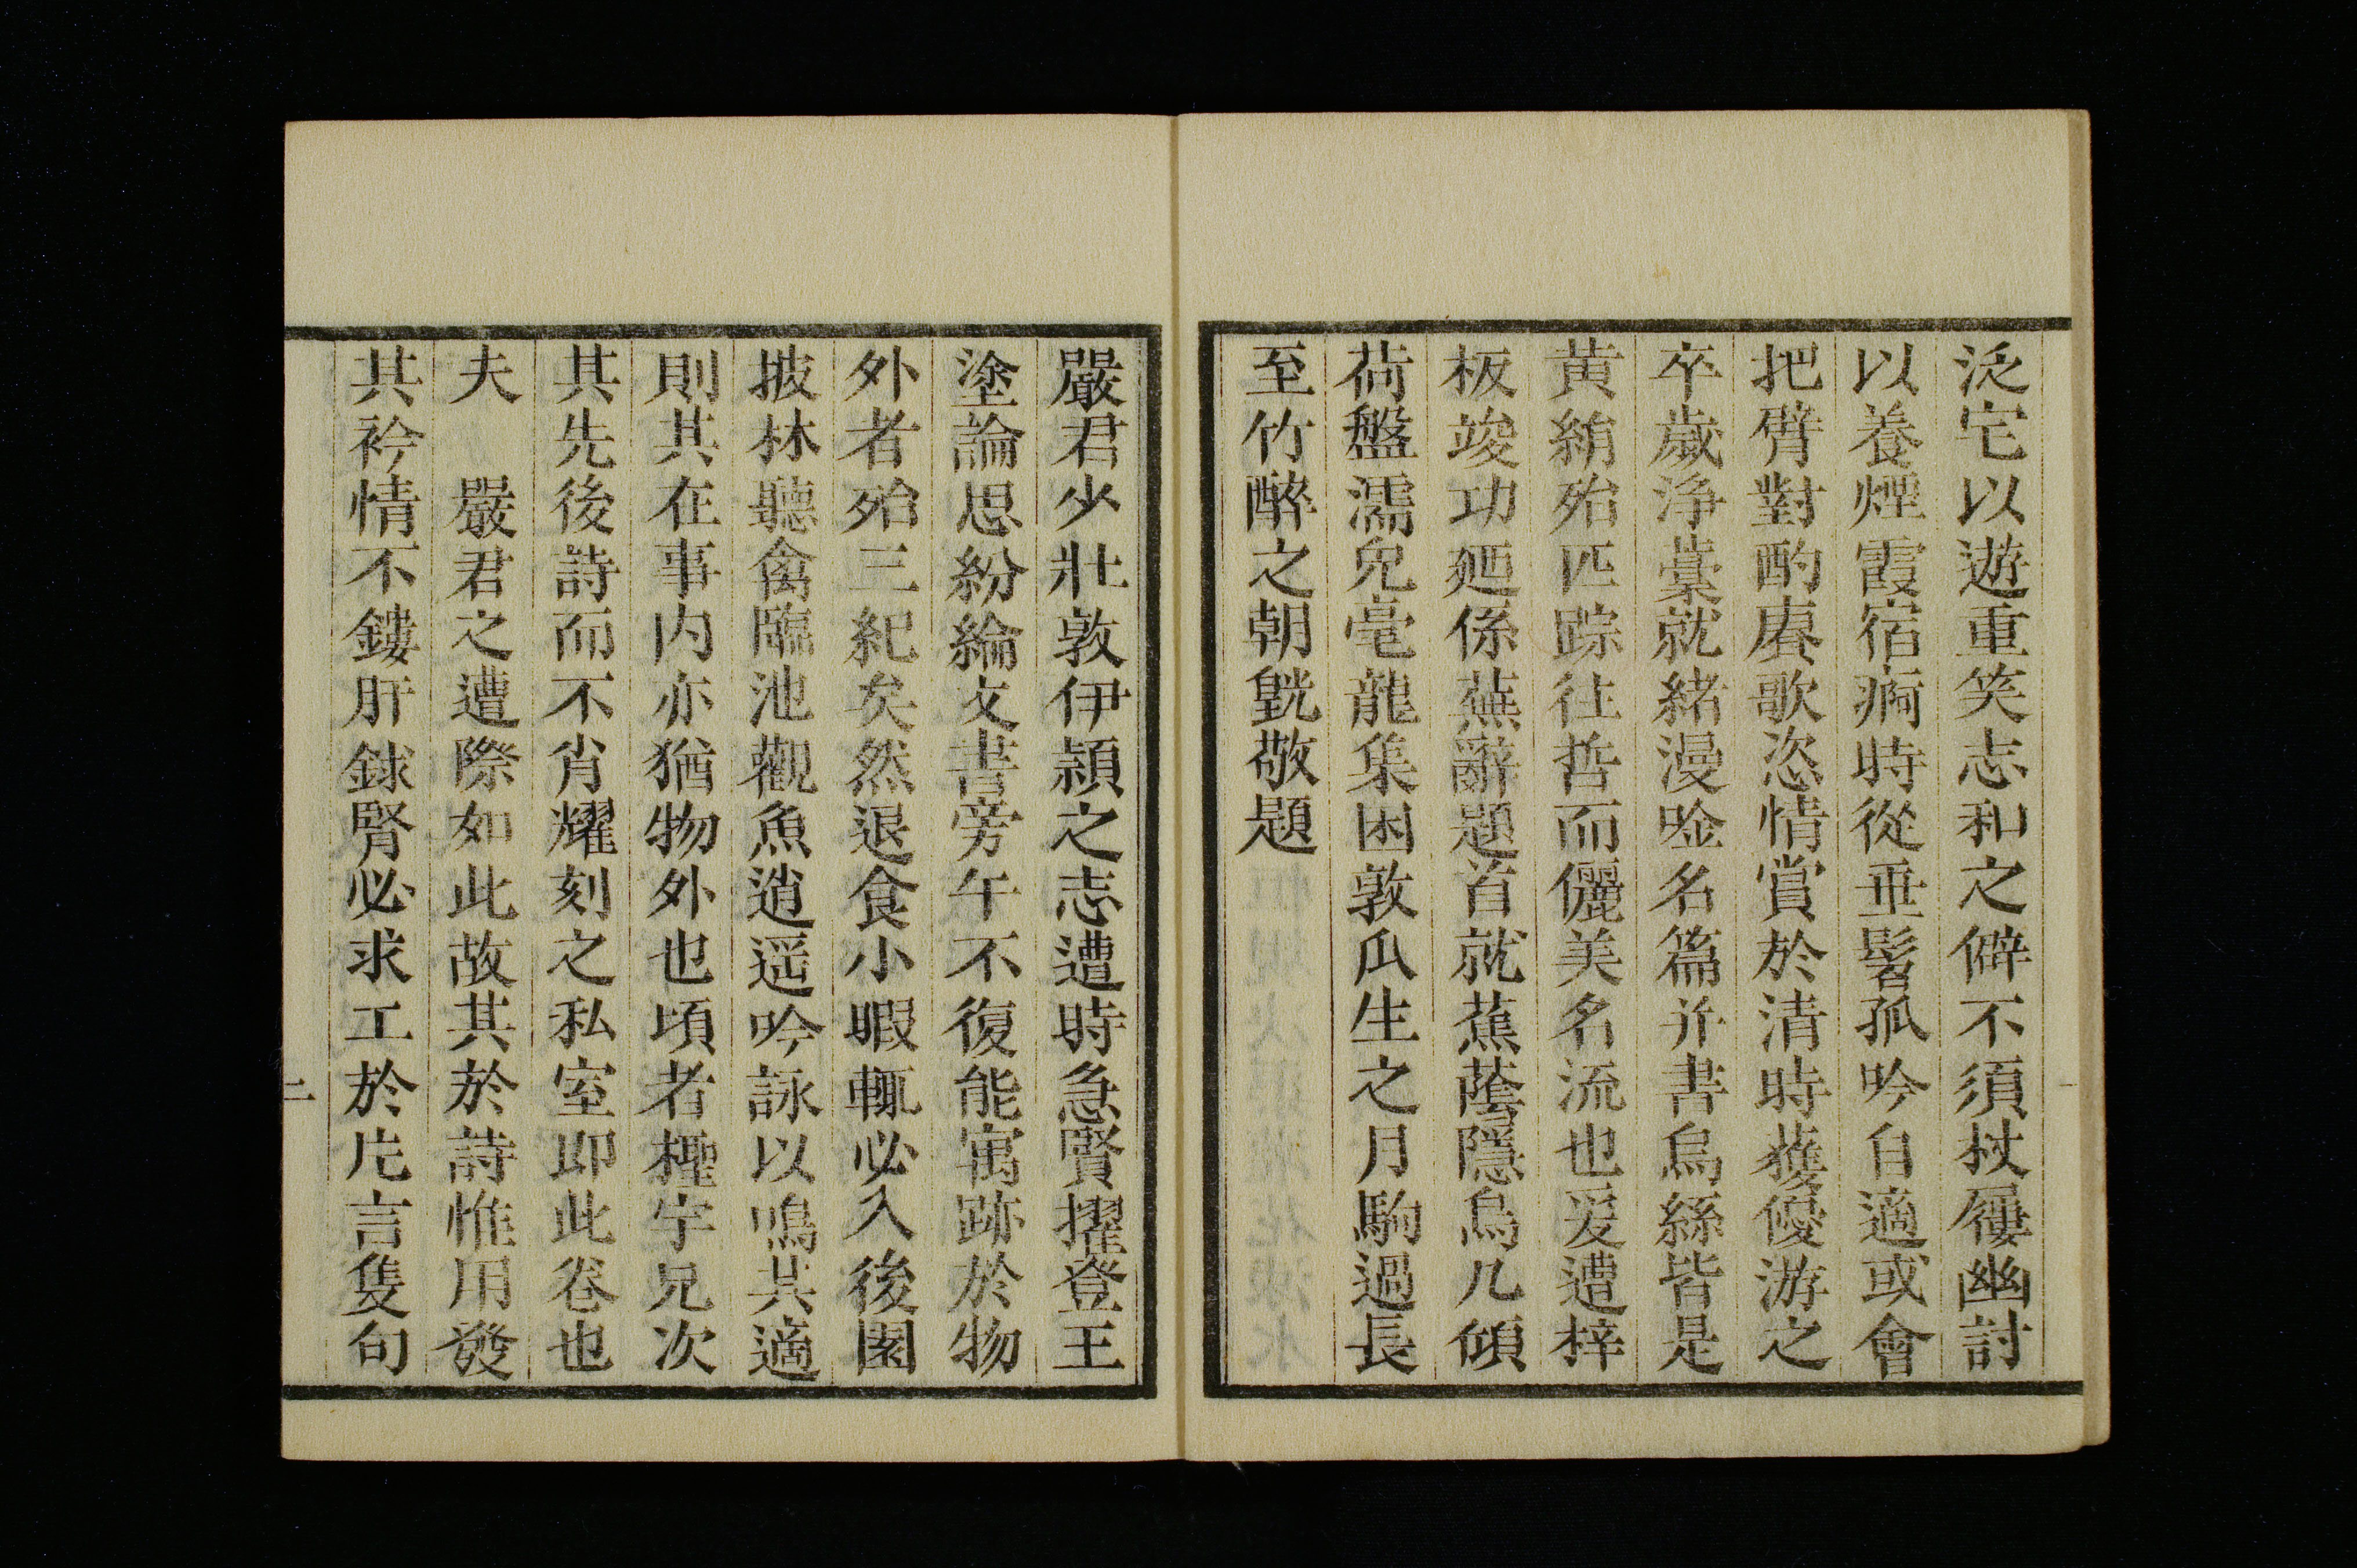 泛宅以遊重笑志和之僻不須杖屨幽討
以養煙霞宿痾時從垂髫孤吟自適或會
把臂對酌賡歌恣情賞於清時獲優游之
卒歲淨藁就緒漫唫名篇并書烏絲皆是
黄絹殆匹踪往哲而儷美名流也爰遭梓
板竣功廼係蕪辭題首就蕉蔭隱烏几傾
荷盤濡兔毫龍集困敦瓜生之月駒過長
至竹醉之朝毿敬題
嚴君少壯敦伊頴之志遭時急賢擢登王
塗論思紛綸文書旁午不復能寓跡於物
外者殆三紀矣然退食小暇輒必入後園
披林聽禽臨池觀魚逍遥吟詠以鳴其適
則其在事内亦猶物外也頃者檉宇兄次
其先後詩而不肖耀刻之私室即此卷也
夫　嚴君之遭際如此故其於詩惟用發
其衿情不鏤肝銶腎必求工於片言隻句
二